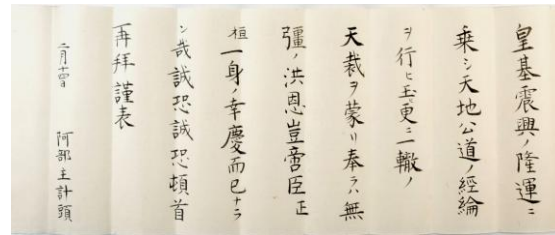 皇基震興ノ隆運ニ
乗シ天地公道ノ經綸
ヲ行ヒ玉ヒ更ニ一轍ノ
天裁ヲ蒙リ奉ラハ無
彊ノ洪恩豈啻臣正
桓一身ノ幸慶而已ナラ
ン哉誠恐誠恐頓首
再拜謹表
二月十四日 阿部主計頭